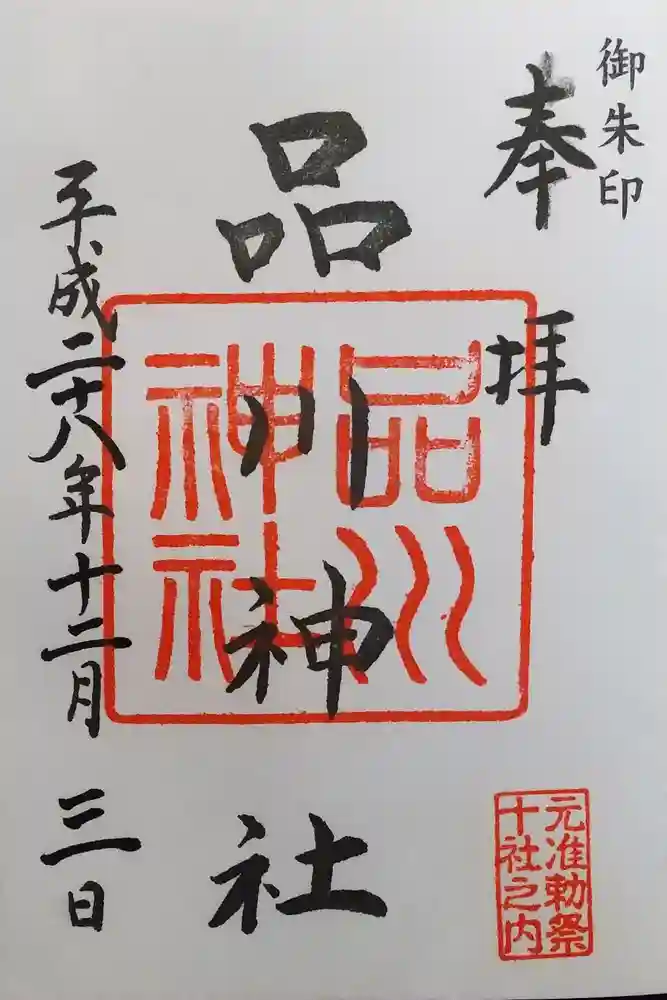 御朱印
奉拝
品川神社
品川
神社
平成二十八年十二月三日
元准勅祭
十社之内